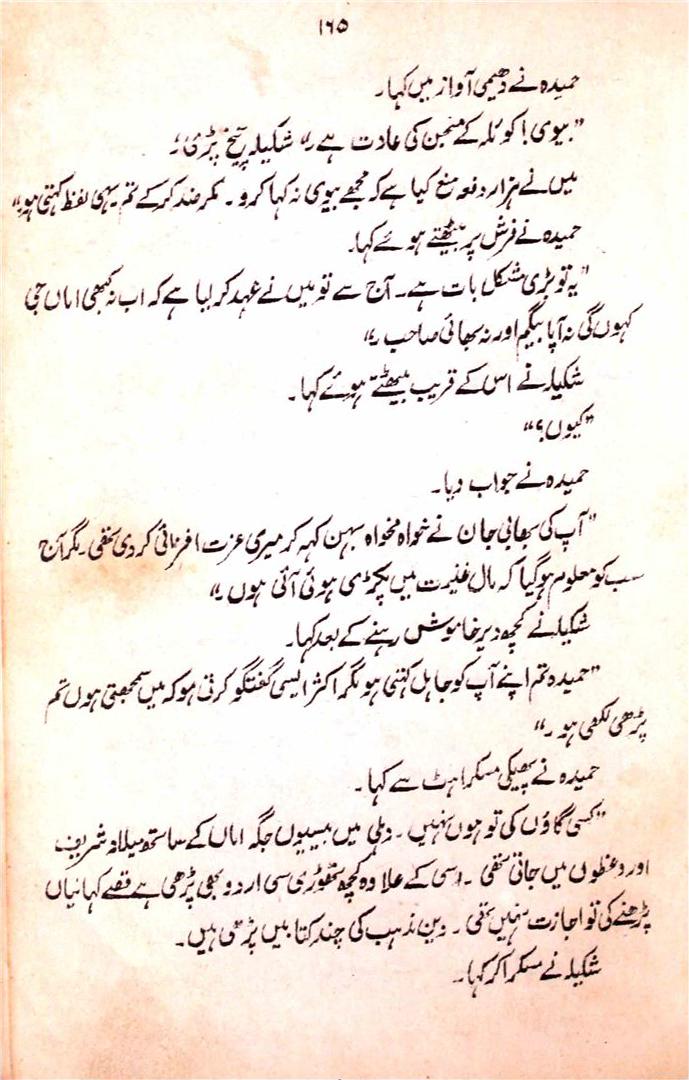 ۱۶۵
حمیدہ نے دھیمی آواز میں کہا۔
”بیوی! کوئلہ کے منجن کی عادت ہے۔“ شکیلہ چیخ پڑی:۔
میں نے ہزار دفعہ منع کیا ہے کہ مجھے بیوی نہ کہا کرو۔ مگر ضد کر کے تم یہی لفظ کہتی ہو۔“
حمیدہ نے فرش پر بیٹھتے ہوئے کہا۔
”یہ تو بڑی مشکل بات ہے۔ آج سے تو میں نے عہد کر لیا ہے کہ اب نہ کبھی اماں جی
کہوں گی نہ آپا بیگم اور نہ بھائی صاحب۔“
شکیلہ نے اس کے قریب بیٹھتے ہوئے کہا۔
”کیوں؟“
حمیدہ نے جواب دیا۔
”آپ کی بھابی جان نے خواہ مخواہ بہن کہہ کر میری عزت افزائی کر دی تھی۔ مگر آج
سب کو معلوم ہو گیا کہ مال غنیمت میں پکڑی ہوئی آئی ہوں۔“
شکیلہ نے کچھ دیر خاموش رہنے کے بعد کہا۔
”حمیدہ تم اپنے آپ کو جاہل کہتی ہو مگر اکثر ایسی گفتگو کرتی ہو کہ میں سمجھتی ہوں تم
پڑھی لکھی ہو۔“
حمیدہ نے پھیکی مسکراہٹ سے کہا۔
”کسی گاؤں کی تو ہوں نہیں۔ دہلی میں بیسیوں جگہ اماں کے ساتھ میلاد شریف
اور وعظوں میں جاتی تھی۔ اسی کے علاوہ کچھ تھوڑی سی اردو بھی پڑھی ہے قصے کہانیاں
پڑھنے کی تو اجازت نہیں تھی۔ دین مذہب کی چند کتابیں پڑھی ہیں۔
شکیلہ نے مسکرا کر کہا۔